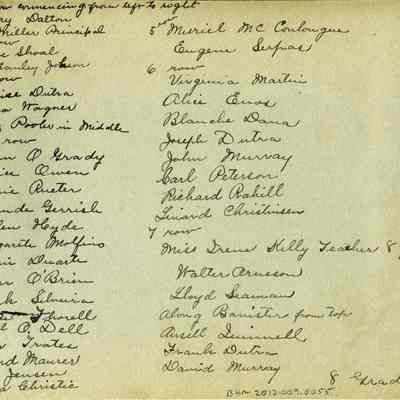 commencing from left to right
Dalton
Miller Principal
row
Shoal
Stanley
row
Dutra
Wagner
Pooler in Middle
row
O Grady
Owen
Rueter
Gerrish
Hyde
Molfino
Duarte
O'Brien
Silveira
Thorell
O. Dell
Trates
Maurer
Jensen
Christie
5 Muriel Mc Conlongue
Eugene Serpas
6 row
Verginia Martin
Alice Enos
Blanche Dana
Joseph Dutra
John Murray
Carl Peterson
Richard Rahill
Linard Christinsen
7 row
Miss Irene Kelly Teacher 8
Walter Arneson
Lloyd Seaman
Along Banister from top
Ansill Quinnell
Frank Dutra
David Murray
8 Grad
BHA 2012.009.0055.